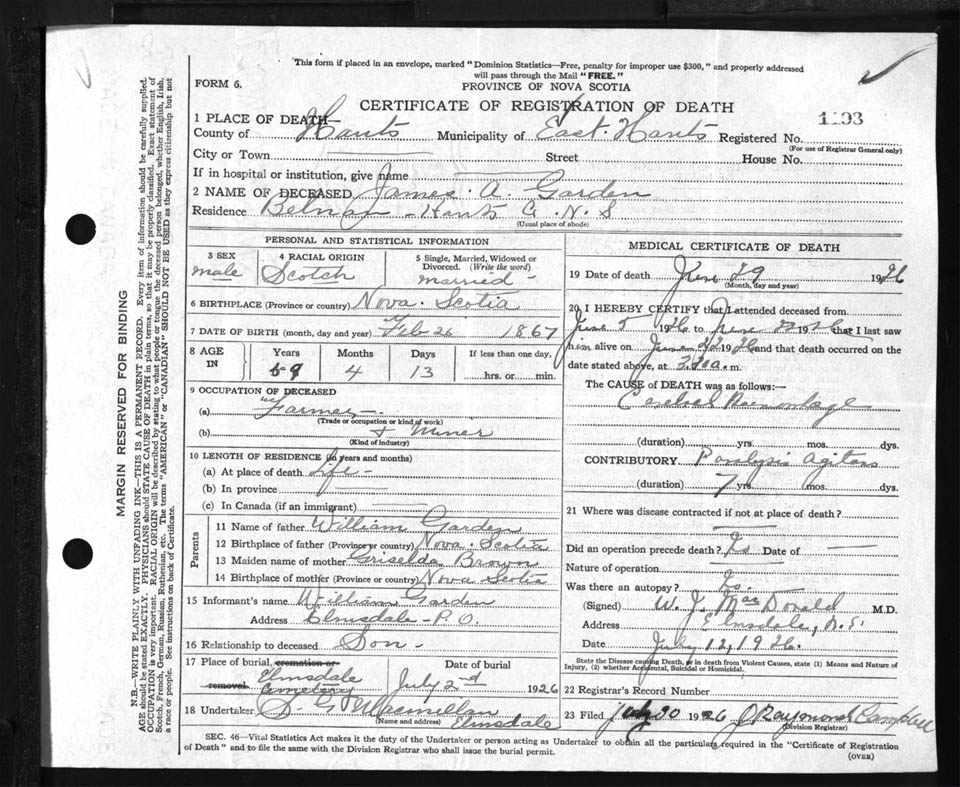 This form if placed in an envelope, marked "Dominion Statistics—Free, penalty for improper use $300," and properly addressed
will pass through the Mail "FREE."
FORM 6.
PROVINCE OF NOVA SCOTIA
CERTIFICATE OF REGISTRATION OF DEATH
1193
1 PLACE OF DEATH—
County of Hants Municipality of East Hants Registered No.
(For use of Registrar General only)
City or Town Street House No.
If in hospital or institution, give name
2 NAME OF DECEASED James A. Garden
Residence Belnan - Hants Co. N.S
(Usual place of abode)
PERSONAL AND STATISTICAL INFORMATION
3 SEX
male
4 RACIAL ORIGIN
Scotch
5 Single, Married, Widowed or
Divorced. (Write the word)
married -
6 BIRTHPLACE (Province or country) Nova Scotia
7 DATE OF BIRTH (month, day and year) Feb 26 1867
8 AGE
IN
Years
Months
Days
If less than one day,
4
13
hrs. or min.
9 OCCUPATION OF DECEASED
(a) Farmer -
(Trade or occupation or kind of work)
(b) + Miner
(Kind of industry)
10 LENGTH OF RESIDENCE (in years and months)
(a) At place of death Life -
(b) In province
(c) In Canada (if an immigrant)
Parents
11 Name of father William Garden
12 Birthplace of father (Province or country) Nova Scotia
13 Maiden name of mother Griselda Brown
14 Birthplace of mother (Province or country) Nova Scotia
15 Informant's name William Garden
Address Elmsdale - P.O.
16 Relationship to deceased Son -
17 Place of burial, cremation or
removal. Elmsdale
Cemetery
Date of burial
July 2nd 1926
18 Undertaker D. G. Macmillan
(Name and address) Elmsdale
MEDICAL CERTIFICATE OF DEATH
19 Date of death June 29 1926
(Month, day and year)
20 I HEREBY CERTIFY that I attended deceased from
June 5 1926 to June that I last saw
him alive on June 22 1926 and that death occurred on
date stated above, at a. m.
The CAUSE of DEATH was as follows:—
Cerebral Haemorrhage
(duration) yrs. mos. dys.
CONTRIBUTORY Paralysis Agitans
(duration) 7 yrs. mos. dys.
21 Where was disease contracted if not at place of death?
Did an operation precede death? No Date of —
Nature of operation
Was there an autopsy? No
(Signed) W. J. MacDonald M.D.
Address Elmsdale, N.S.
Date July 12, 1926.
State the Disease causing Death, or in death from Violent Causes, state (1) Means and Nature of
Injury, (2) whether Accidental, Suicidal or Homicidal.
22 Registrar's Record Number
23 Filed July 20 1926 J Raymond Campbell
(Division Registrar)
SEC. 46—Vital Statistics Act makes it the duty of the Undertaker or person acting as Undertaker to obtain all the particulars required in the "Certificate of Registration
of Death" and to file the same with the Division Registrar who shall issue the burial permit.
(OVER)
MARGIN RESERVED FOR BINDING
N.B.—WRITE PLAINLY WITH UNFADING INK—THIS IS A PERMANENT RECORD. Every item of information should be carefully supplied.
AGE should be stated EXACTLY. PHYSICIANS should STATE CAUSE OF DEATH in plain terms, so that it may be properly classified. Exact statement of
OCCUPATION is very important. RACIAL ORIGIN will be described by stating to what people or tongue the deceased person belonged, whether English, Irish,
Scotch, French, German, Russian, Ruthenian, etc. The terms "AMERICAN" or "CANADIAN" SHOULD NOT BE USED as they express citizenship but not
a race or people. See instructions on back of Certificate.